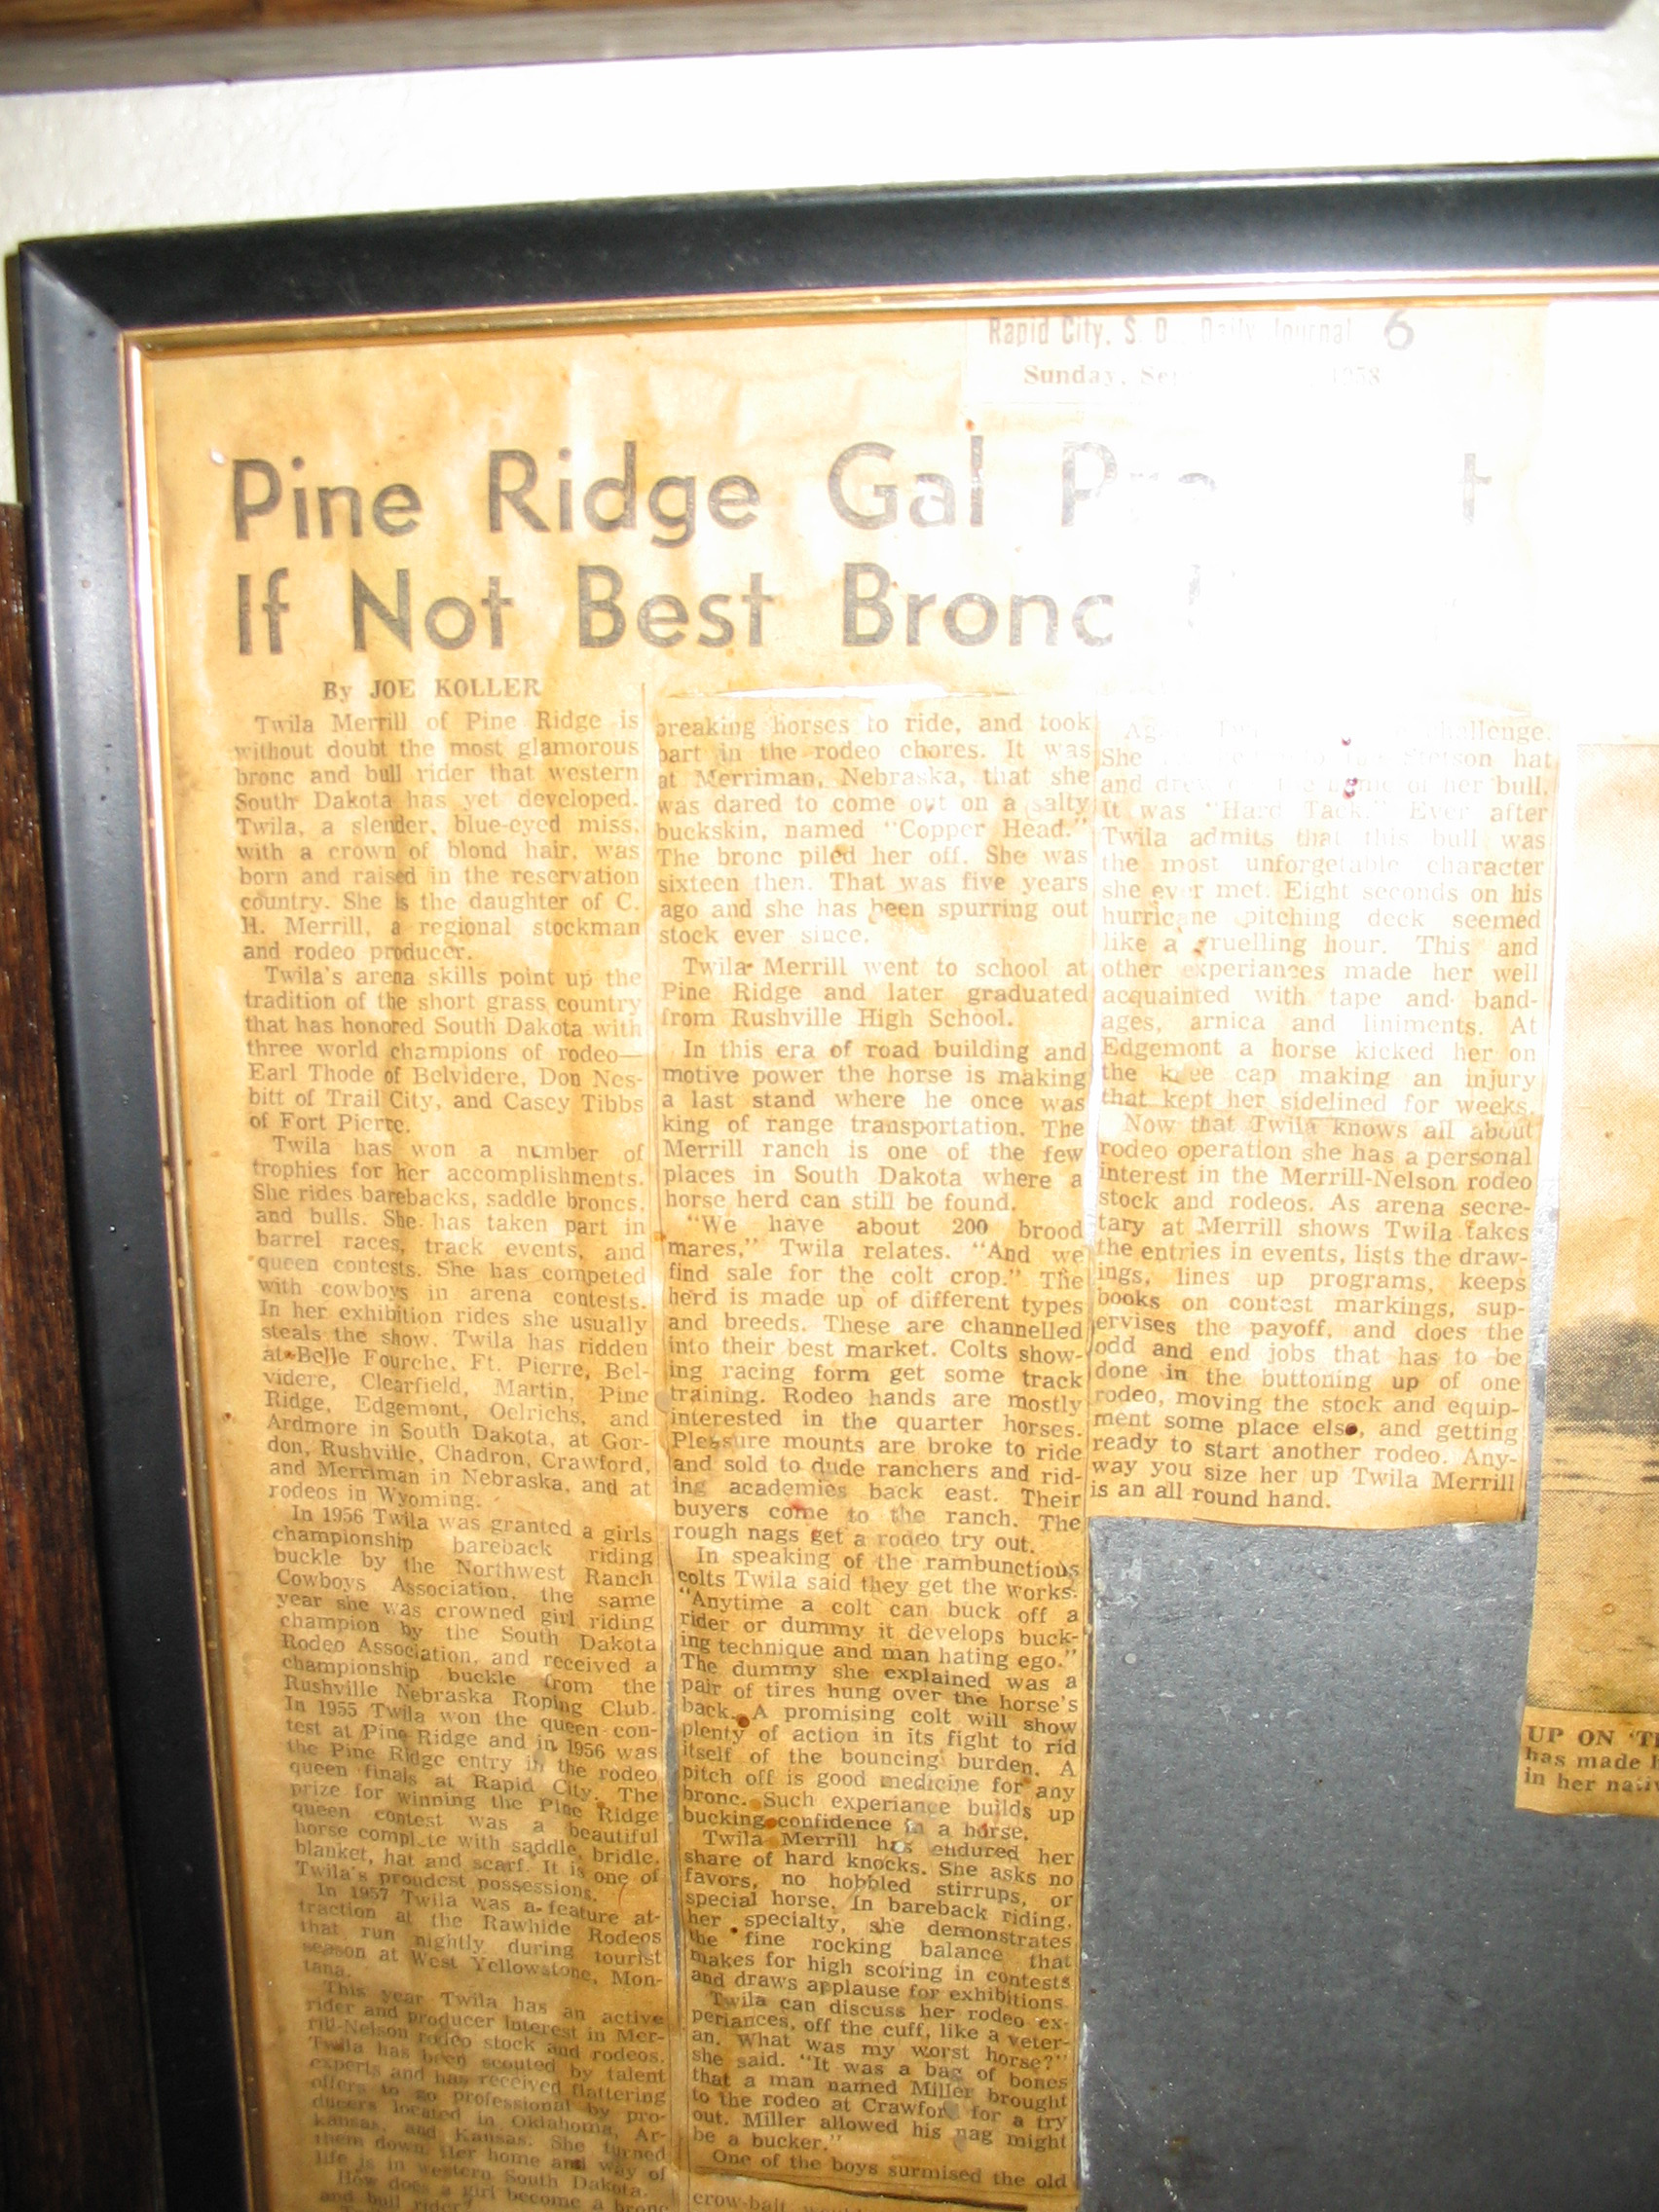 Rapid City, S. D., Daily Journal 6
Sunday, 1958
Pine Ridge Gal
If Not Best Bronc
By JOE KOLLER
Twila Merrill of Pine Ridge is
without doubt the most glamorous
bronc and bull rider that western
South Dakota has yet developed.
Twila, a slender, blue-eyed miss,
with a crown of blond hair, was
born and raised in the reservation
country. She is the daughter of C.
H. Merrill, a regional stockman
and rodeo producer.
Twila's arena skills point up the
tradition of the short grass country
that has honored South Dakota with
three world champions of rodeo—
Earl Thode of Belvidere, Don Nes-
bitt of Trail City, and Casey Tibbs
of Fort Pierre.
Twila has won a number of
trophies for her accomplishments.
She rides barebacks, saddle broncs,
and bulls. She has taken part in
barrel races, track events, and
queen contests. She has competed
with cowboys in arena contests.
In her exhibition rides she usually
steals the show. Twila has ridden
at Belle Fourche, Ft. Pierre, Bel-
videre, Clearfield, Martin, Pine
Ridge, Edgemont, Oelrichs, and
Ardmore in South Dakota, at Gor-
don, Rushville, Chadron, Crawford,
and Merriman in Nebraska, and at
rodeos in Wyoming.
In 1956 Twila was granted a girls
championship bareback riding
buckle by the Northwest Ranch
Cowboys Association, the same
year she was crowned girl riding
champion by the South Dakota
Rodeo Association, and received a
championship buckle from the
Rushville Nebraska Roping Club.
In 1955 Twila won the queen con-
test at Pine Ridge and in 1956 was
the Pine Ridge entry in the rodeo
queen finals at Rapid City. The
prize for winning the Pine Ridge
queen contest was a beautiful
horse complete with saddle, bridle,
blanket, hat and scarf. It is one of
Twila's proudest possessions.
In 1957 Twila was a feature at-
traction at the Rawhide Rodeos
that run nightly during tourist
season at West Yellowstone, Mon-
tana.
This year Twila has an active
rider and producer interest in Mer-
rill-Nelson rodeo stock and rodeos.
Twila has been scouted by talent
experts and has received flattering
offers to go professional by pro-
ducers located in Oklahoma, Ar-
kansas, and Kansas. She turned
them down. Her home and way of
life is in western South Dakota.
How does a girl become a bronc
and bull rider?
breaking horses to ride, and took
part in the rodeo chores. It was
at Merriman, Nebraska, that she
was dared to come out on a salty
buckskin, named "Copper Head."
The bronc piled her off. She was
sixteen then. That was five years
ago and she has been spurring out
stock ever since.
Twila Merrill went to school at
Pine Ridge and later graduated
from Rushville High School.
In this era of road building and
motive power the horse is making
a last stand where he once was
king of range transportation. The
Merrill ranch is one of the few
places in South Dakota where a
horse herd can still be found.
"We have about 200 brood
mares," Twila relates. "And we
find sale for the colt crop." The
herd is made up of different types
and breeds. These are channelled
into their best market. Colts show-
ing racing form get some track
training. Rodeo hands are mostly
interested in the quarter horses.
Pleasure mounts are broke to ride
and sold to dude ranchers and rid-
ing academies back east. Their
buyers come to the ranch. The
rough nags get a rodeo try out.
In speaking of the rambunctious
colts Twila said they get the works.
"Anytime a colt can buck off a
rider or dummy it develops buck-
ing technique and man hating ego."
The dummy she explained was a
pair of tires hung over the horse's
back. A promising colt will show
plenty of action in its fight to rid
itself of the bouncing burden. A
pitch off is good medicine for any
bronc. Such experiance builds up
bucking confidence in a horse.
Twila Merrill has endured her
share of hard knocks. She asks no
favors, no hobbled stirrups, or
special horse. In bareback riding,
her specialty, she demonstrates
the fine rocking balance that
makes for high scoring in contests
and draws applause for exhibitions.
Twila can discuss her rodeo ex-
periances, off the cuff, like a veter-
an. What was my worst horse?"
she said. "It was a bag of bones
that a man named Miller brought
to the rodeo at Crawford for a try
out. Miller allowed his nag might
be a bucker."
One of the boys surmised the old
crow-bait
challenge.
She Stetson hat
and drew the name of her bull.
It was "Hard Tack." Ever after
Twila admits that this bull was
the most unforgetable character
she ever met. Eight seconds on his
hurricane pitching deck seemed
like a gruelling hour. This and
other experiances made her well
acquainted with tape and band-
ages, arnica and liniments. At
Edgemont a horse kicked her on
the knee cap making an injury
that kept her sidelined for weeks.
Now that Twila knows all about
rodeo operation she has a personal
interest in the Merrill-Nelson rodeo
stock and rodeos. As arena secre-
tary at Merrill shows Twila takes
the entries in events, lists the draw-
ings, lines up programs, keeps
books on contest markings, sup-
ervises the payoff, and does the
odd and end jobs that has to be
done in the buttoning up of one
rodeo, moving the stock and equip-
ment some place else, and getting
ready to start another rodeo. Any-
way you size her up Twila Merrill
is an all round hand.
UP ON
has made
in her